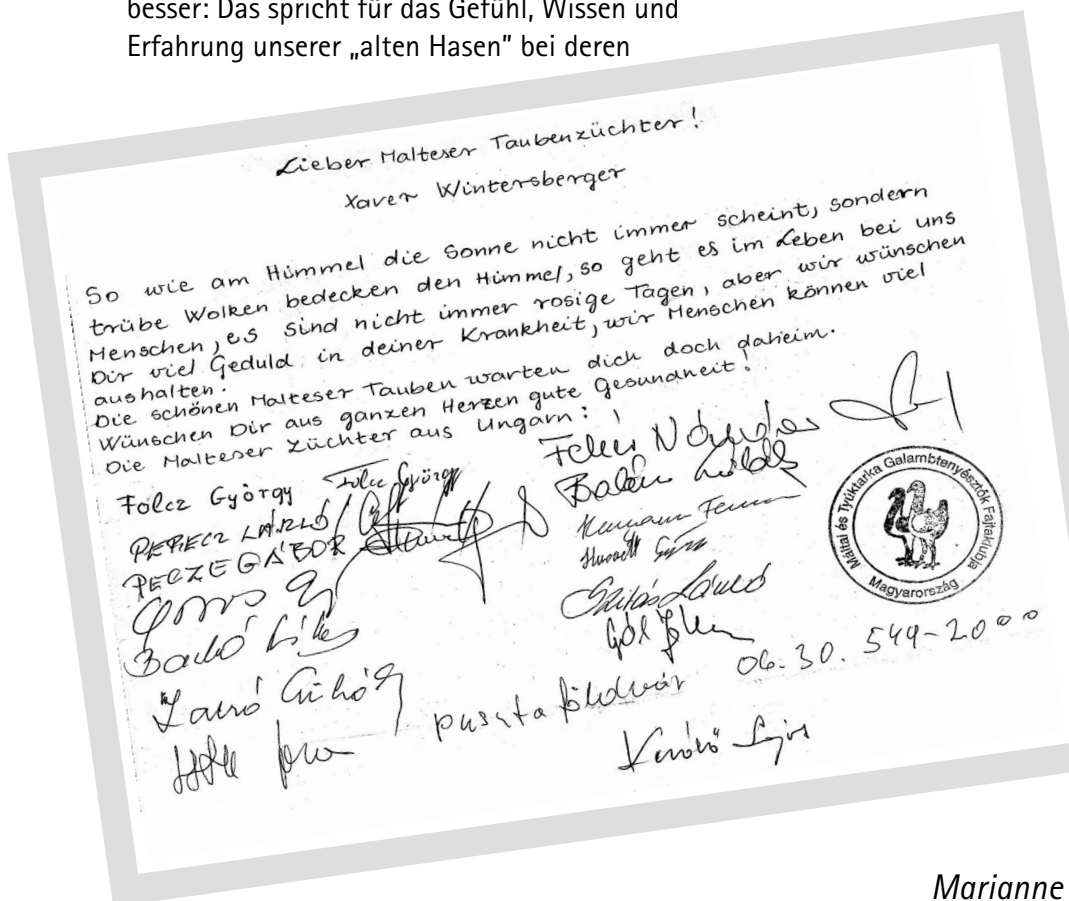 besser: Das spricht für das Gefühl, Wissen und
Erfahrung unserer „alten Hasen" bei deren
Lieber Malteser Taubenzüchter!
Xaver Wintersberger
So wie am Himmel die Sonne nicht immer scheint, sondern
trübe Wolken bedecken den Himmel, so geht es im Leben bei uns
Menschen, es sind nicht immer rosige Tagen, aber wir wünschen
Dir viel Geduld in deiner Krankheit, wir Menschen können viel
aushalten.
Die schönen Malteser Tauben warten dich doch daheim.
Wünschen Dir aus ganzen Herzen gute Gesundheit!
Die Malteser Züchter aus Ungarn:
Folcz György Folcz György
PERECZ LÁSZLÓ
PECZE GÁBOR
Máltai és Tyúktarka Galambtenyésztők Fajtaklubja
Magyarország
puszta földvár 06.30. 549-2000
Marianne